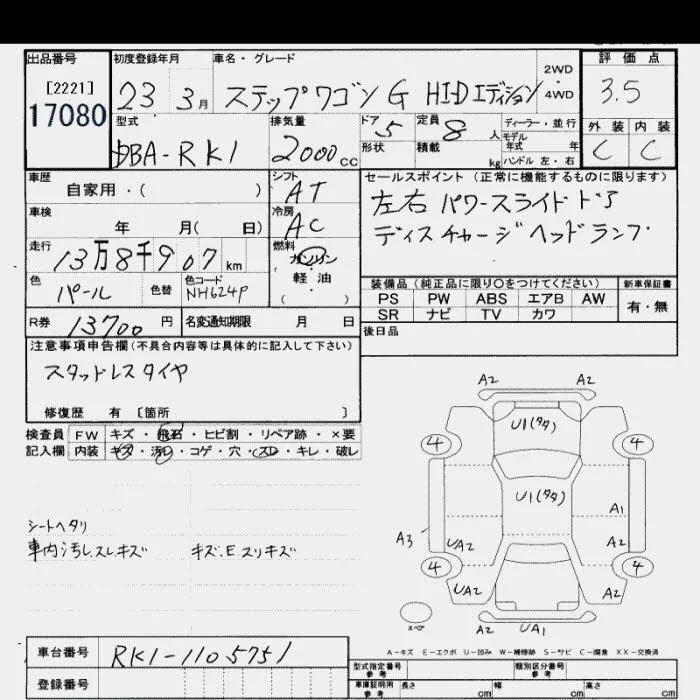 出品番号 初度登録年月 車名・グレード 2WD・4WD 評価点
[2221]
17080 23 3月 ステップワゴン G HIDエディション 3.5
型式 排気量 ドア 5 定員 8 人 ディーラー・並行 外装 内装
DBA-RK1 2000cc 形状 積載 kg モデル年式 年 C C
ハンドル 左・右
車歴 シフト セールスポイント (正常に機能するものに限ります)
自家用・( ) AT 左右 パワースライドドア
車検 冷房 ディスチャージヘッドランプ
年 月( 日) AC
走行 燃料
13万8千907km ガソリン
軽油
( )
色 色替 色コード 装備品 (純正品に限り○をつけてください) 新車保証書
パール NH624P PS PW ABS エアB AW 有・無
SR ナビ TV カワ
R券 13700円 名変通知期限 月 日 後日品
注意事項申告欄(不具合内容等は具体的に記入して下さい)
スタッドレスタイヤ
修復歴 有 [箇所 ]
検査員 FW キズ・飛石・ヒビ割・リペア跡・×要
記入欄 内装 キズ・汚レ・コゲ・穴・スレ・キレ・破レ
シートヘタリ
車内汚レスレキズ キズ.E スリキズ
A2 A2
U1(タタ)
4 4
U1(タタ)
A1
A3 UA2 A2
4 4
UA2 A2
A2 UA1
スペア
A-キズ E-エクボ U-凹み W-補修跡 S-サビ C-腐食 XX-交換済
車台番号 RK1-1105751 型式指定番号 参考 類別区分番号 参考
登録番号 車庫証明用 参考 長さ cm 幅 cm 高さ cm